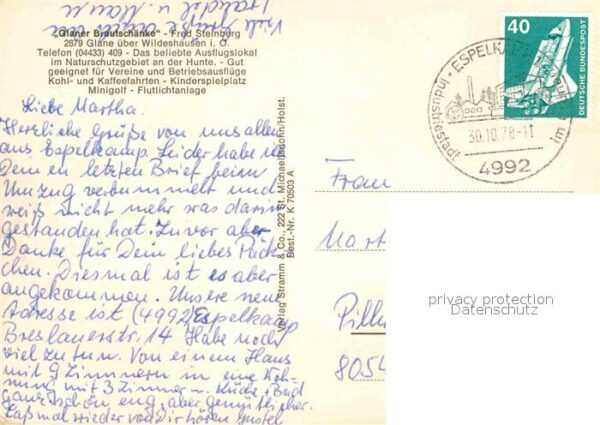 Viele
"Glaner Brautschänke" - Fred Steinberg
2879 Glane über Wildeshausen i. O.
Telefon (04433) 409 - Das beliebte Ausflugslokal
im Naturschutzgebiet an der Hunte. - Gut
geeignet für Vereine und Betriebsausflüge
Kohl- und Kaffeefahrten - Kinderspielplatz
Minigolf - Flutlichtanlage
Liebe Martha.
Herzliche Grüße von uns allen
aus Espelkamp. Leider habe ich
Deinen letzten Brief beim
Umzug verbummelt und
weiß nicht mehr was darin
gestanden hat. Zuvor aber
Danke für Dein liebes Päck-
chen. Diesmal ist es aber
angekommen. Unsere neue
Adresse ist (4992) Espelkamp
Breslauerstr. 14 Habe noch
viel zu tun. Von einem Haus
mit 9 Zimmern in eine Woh-
nung mit 3 Zimmer u. Küche, Bad
ganz schön eng, aber gemütlicher.
Laß mal wieder von Dir hören
Verlag Stramm & Co., 222 St. Michaelisdonn/Holst.
Best.-Nr. K 70503 A
40
DEUTSCHE BUNDESPOST
ESPELKAMP
Industriestadt im
30.10.78-11
4992
Frau
Mart
Pill
8054
privacy protection
Datenschutz